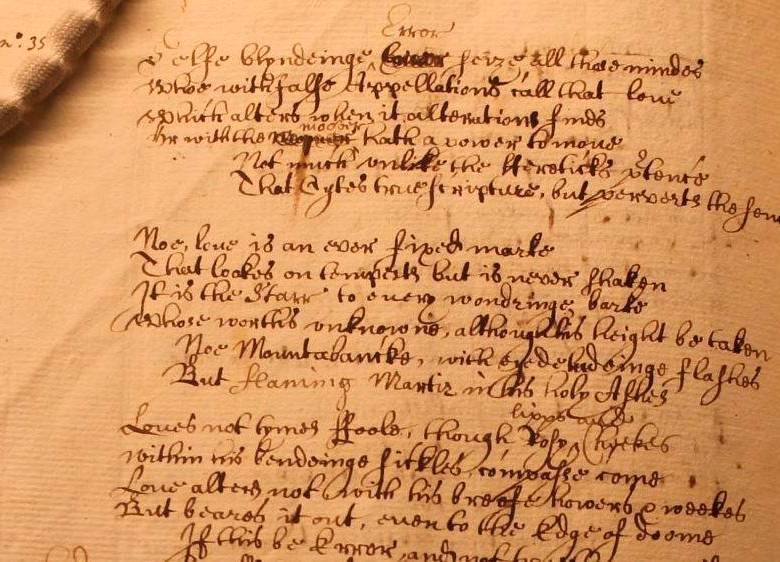 n°: 35
Error
Selfe blyndeinge seize all those mindes
Whoe with false Appellations call that love
Which alters when it alterations finds
moover
Or with the hath a power to move
Not much unlike the Hereticks ptence
That Cytes true scripture, but perverts the sen
Noe, love is an ever fixed marke
That lookes on tempests but is never shaken
It is the Starr to every wondringe barke
Whose worths unknowne, although his height be taken
Noe Mountabancke, with eyedeludeinge flashes
But flaming Martir in his holy Ashes
lipps and
Loves not tymes ffoole, though Rosy Cheekes
within his bendeinge sickles compasse come
Love alters not with his breefe howers & weekes
But beares it out, even to the Edge of doome
If this be Error, and not